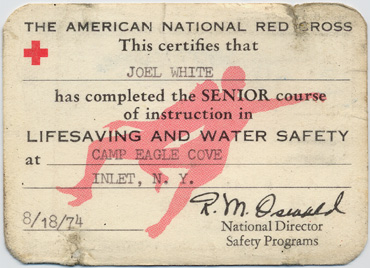 THE AMERICAN NATIONAL RED CROSS
This certifies that
JOEL WHITE
has completed the SENIOR course
of instruction in
LIFESAVING AND WATER SAFETY
at CAMP EAGLE COVE
INLET, N. Y.
8/18/74
R. M. Oswald
National Director
Safety Programs